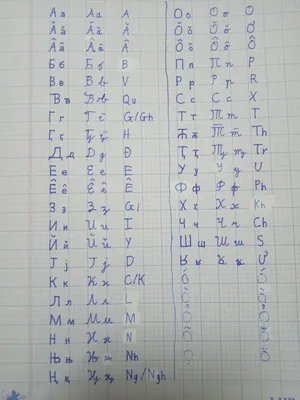 Аа Аа A
Ӑӑ Ӑӑ Ă
Ââ Ââ Â
Бб Бб B
Вв Вв V
Qu
Гг Гг G/Gh
H
Дд Дд Đ
Ее Ее E
Êê Êê Ê
Зз Зз Gi
Ии Ии I
Йй Йй Y
Јј Јј D
Кк Кк C/K
Лл Лл L
Мм Мм M
Нн Нн N
Њњ Њњ Nh
Ңң Ңң Ng/Ngh
Оо Оо O
Ŏŏ Ŏŏ Ơ
Ôô Ôô Ô
Пп Пп P
Рр Рр R
Сс Сс X
Тт Тт T
Th
Ҭҭ Ҭҭ Tr
Уу Уу U
Фф Фф Ph
Хх Хх Kh
Чч Чч Ch
Шш Шш S
Ư